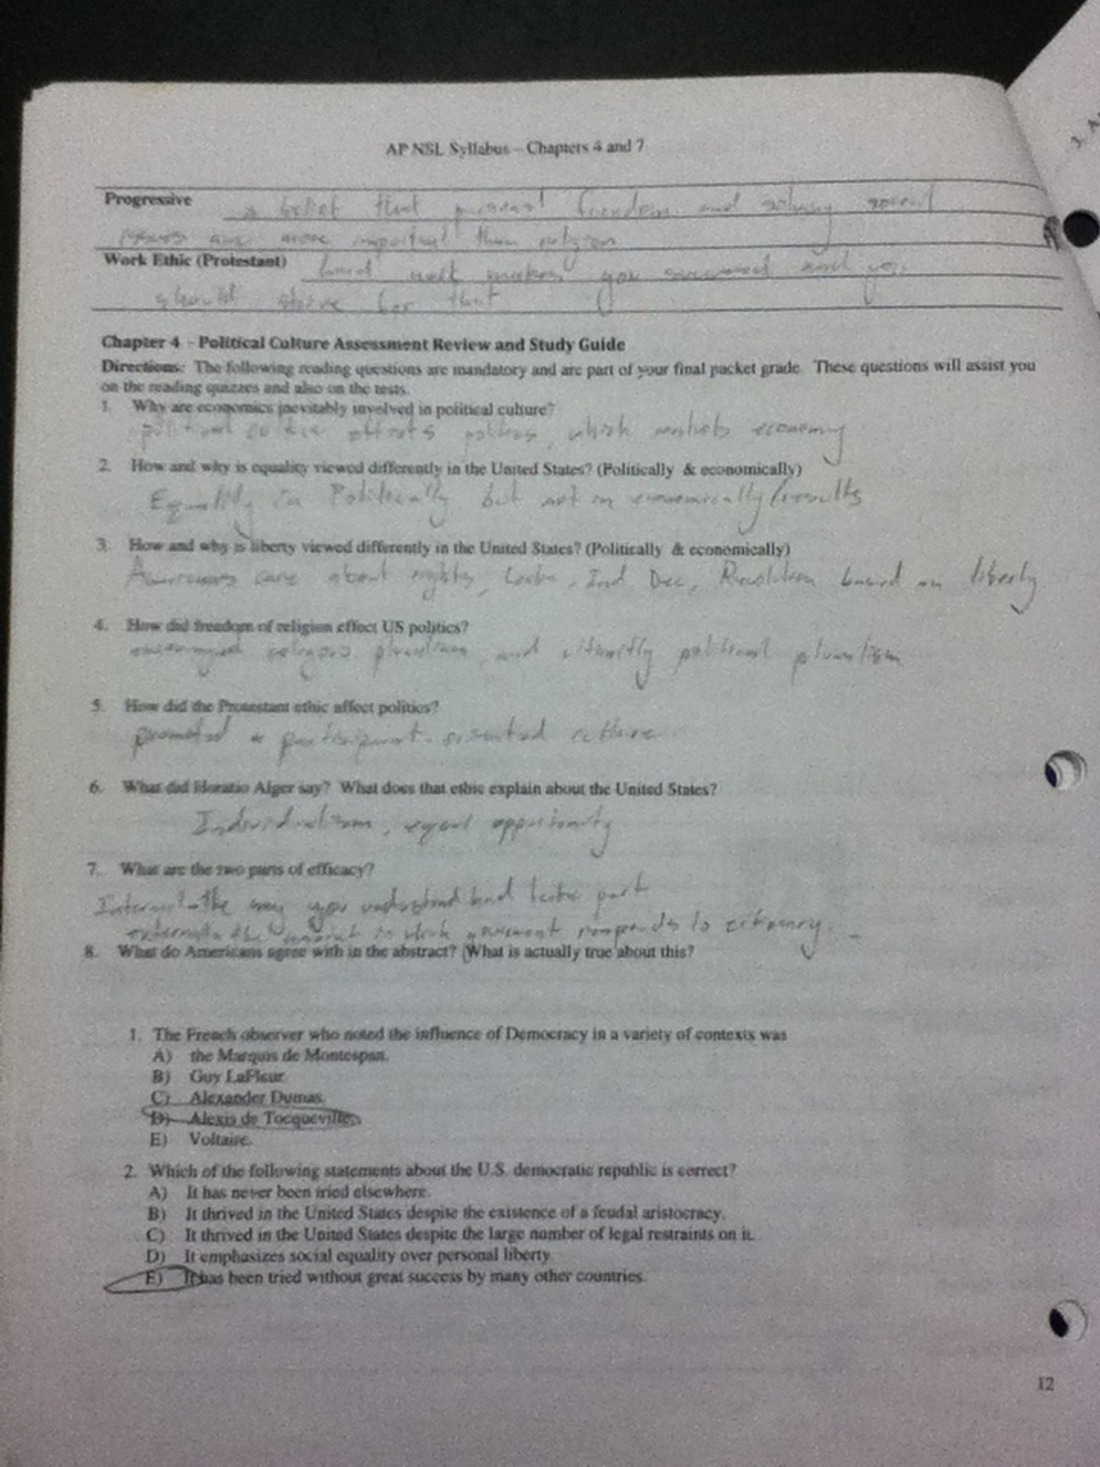 AP NSL Syllabus – Chapters 4 and 7
Progressive a belief that personal freedom and solving social
issues are more important than religion
Work Ethic (Protestant) hard work makes you succeed and you
should strive for that
Chapter 4 - Political Culture Assessment Review and Study Guide
Directions: The following reading questions are mandatory and are part of your final packet grade. These questions will assist you
on the reading quizzes and also on the tests.
1. Why are economics inevitably involved in political culture?
political culture affects politics, which controls economy
2. How and why is equality viewed differently in the United States? (Politically & economically)
Equality in Politically but not in economically/results
3. How and why is liberty viewed differently in the United States? (Politically & economically)
Americans care about rights, Locke, Ind Dec, Revolution based on liberty
4. How did freedom of religion effect US politics?
encouraged religious pluralism, and political pluralism
5. How did the Protestant ethic affect politics?
promoted a participant-oriented culture
6. What did Horatio Alger say? What does that ethic explain about the United States?
Individualism, equal opportunity
7. What are the two parts of efficacy?
Internal-the way you understand and take part
external-the to which government responds to citizenry.
8. What do Americans agree with in the abstract? (What is actually true about this?
1. The French observer who noted the influence of Democracy in a variety of contexts was
A) the Marquis de Montespan.
B) Guy LaFleur.
C) Alexander Dumas.
D) Alexis de Tocqueville.
E) Voltaire.
2. Which of the following statements about the U.S. democratic republic is correct?
A) It has never been tried elsewhere.
B) It thrived in the United States despite the existence of a feudal aristocracy.
C) It thrived in the United States despite the large number of legal restraints on it.
D) It emphasizes social equality over personal liberty.
E) It has been tried without great success by many other countries.
12